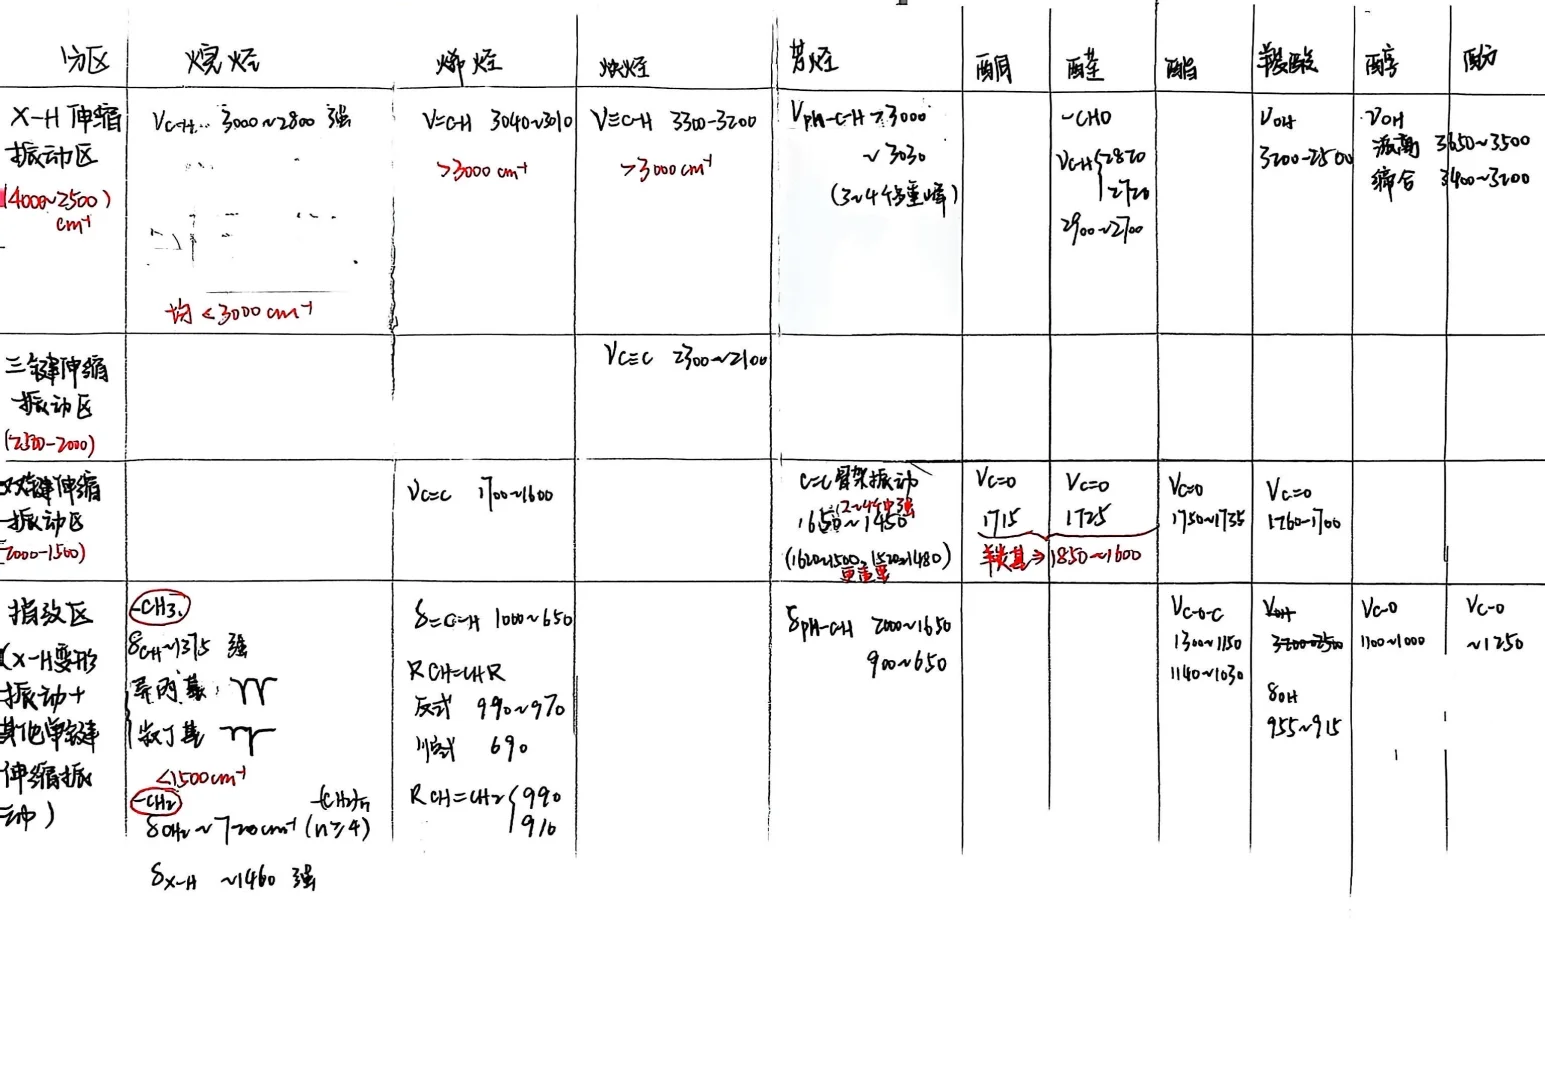 分区 烷烃 烯烃 炔烃 芳烃 酮 醛 酯 羧酸 醇 酚
X-H 伸缩
振动区
(4000~2500)
cm⁻¹
νC-H 3000~2800 强
均 < 3000 cm⁻¹
ν=C-H 3040~3010
>3000 cm⁻¹
ν≡C-H 3300-3200
>3000 cm⁻¹
νPH-C-H >3000
~3030
(3~4个多重峰)
-CHO
νC-H { 2820
2720
2900~2700
νOH
3200-2500
νOH
游离 3650~3500
缔合 3400~3200
三键伸缩
振动区
(2500-2000)
νC≡C 2300~2100
双键伸缩
振动区
2000-1500)
νC=C 1700~1600
C=C骨架振动
(2~4个中强
1650~1450
(1620~1500, 1520~1480)
更重要
νC=O
1715
νC=O
1725
羰基⇒1850~1600
νC=O
1750~1735
νC=O
1760-1700
指纹区
(X-H变形
振动+
其他单键
伸缩振
动)
-CH3.
δCH~1375 强
异丙基:
叔丁基
<1500cm⁻¹
-CH2
-(CH2)n
δCH2 ~720cm⁻¹ (n≥4)
δX-H ~1460 强
δ=C-H 1000~650
RCH=CHR
反式 990~970
顺式 690
RCH=CH2 { 990
910
δPH-CH 2000~1650
900~650
νC-O-C
1300~1150
1140~1030
νOH
3200-2500
δOH
955~915
νC-O
1100~1000
νC-O
~1250